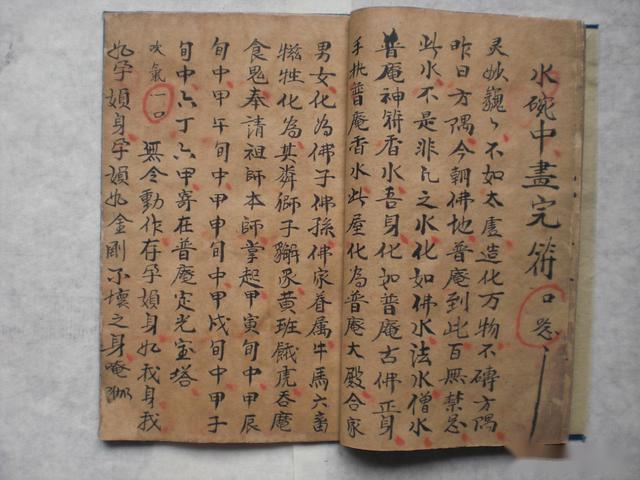 水碗中畫完符口忌
灵妙巍々不如太虚造化万物不磚方隅
昨日方隅今朝佛地普庵到此百無禁忌
此水不是非凡之水化如佛水法水僧水
普庵神符香水吾身化如普庵古佛正身
手執普庵香水此屋化為普庵大殿合家
男女化為佛子佛孫佛家眷属牛馬六畜
犧牲化為其犇獅子獬豸黄班餓虎吞魔
食鬼奉請祖師本師掌起甲寅旬中甲辰
旬中甲午旬中甲申旬中甲戌旬中甲子
旬中六丁六甲寄在普庵定光宝塔
吹氣一口 無令動作存孕媍身如我身我
如孕媍身孕媍如金剛不壞之身唵